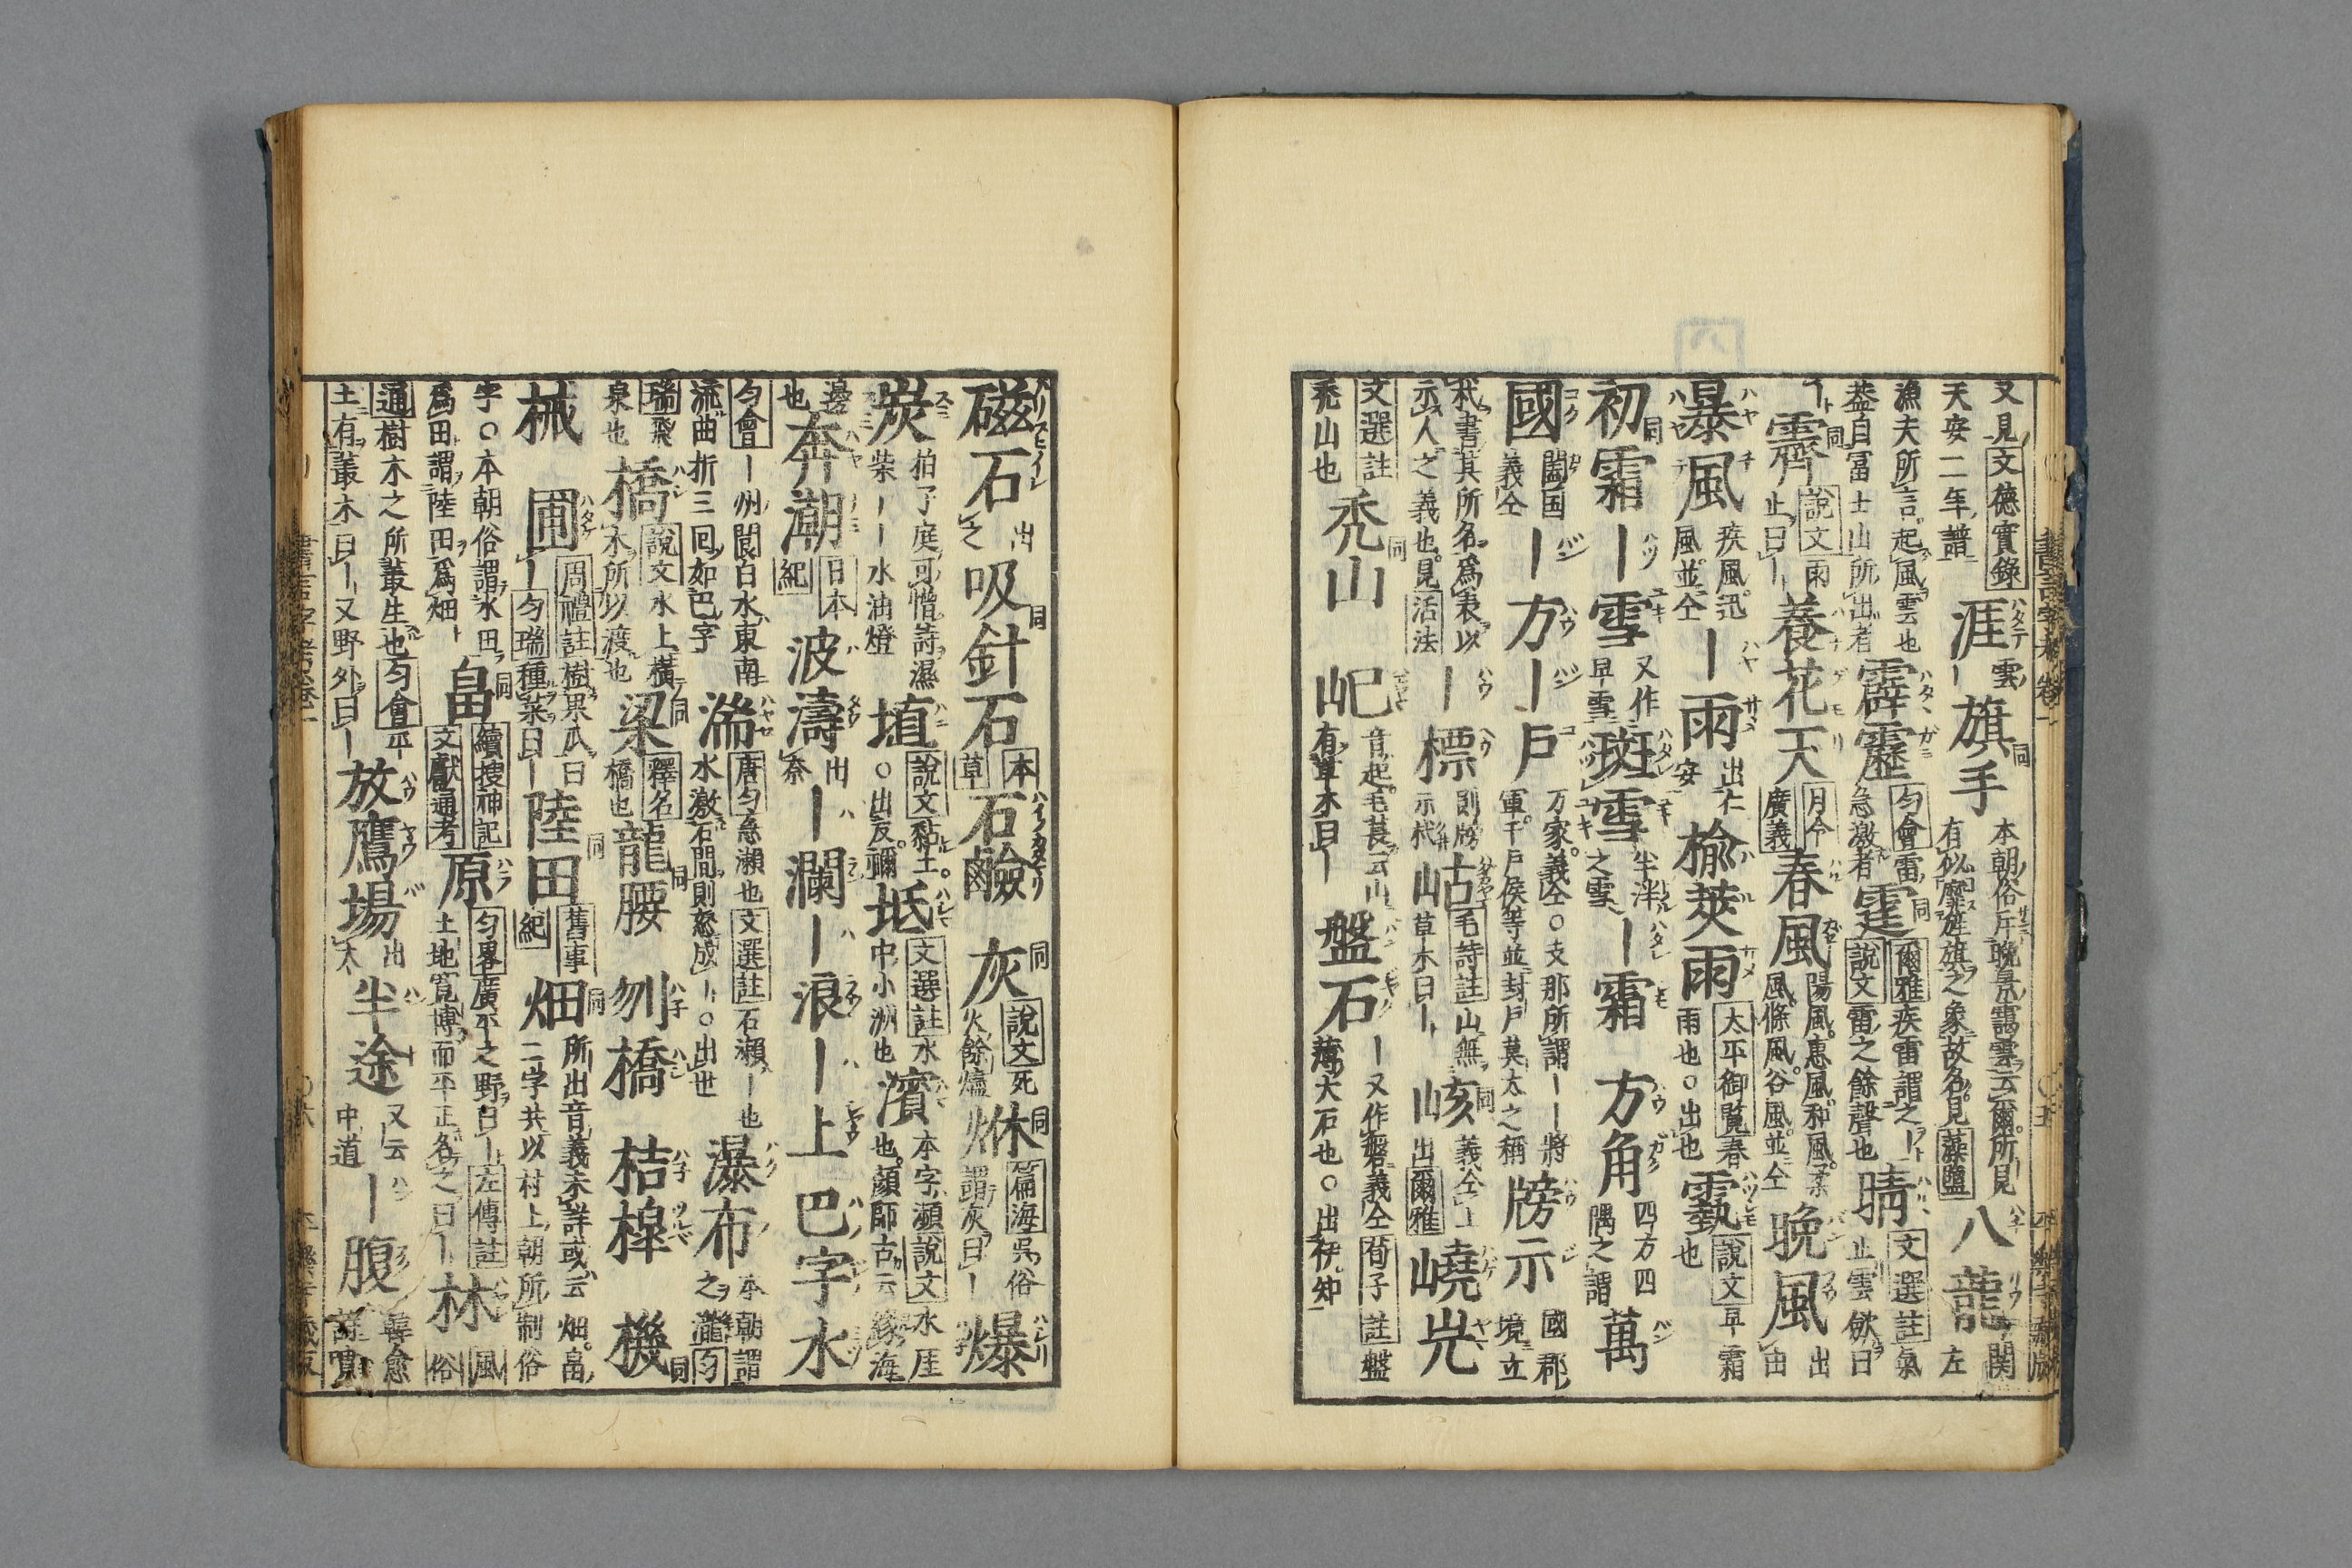 又見文德實錄天安二年譜 涯雲ー 旗手 同 本朝俗斥晚景靄雲云爾所見有似麾旌旗之象故名見藻鹽 八龍 関左
漁夫所言起風雲也蓋自冨士山所出者 霹靂 匀會雷急激者 霆 同 爾雅疾雷謂之ー說文雷之餘聲也 晴 文選註氣止雲斂曰
ー 霽 同 說文雨止曰ー 養花天 月令廣義 春風 陽風惠風和風柔風條風谷風並仝 晚風 出由
暴風 疾風迅風並仝 ー雨 出仁安 榆莢雨 太平御覧春雨也○出也 霎 說文早霜也
初霜 同 ー雪 又作早雪 斑雪 半泮之雪 ー霜 方角 四方四隅之謂 萬
國 闔国義仝 ー方 ー戶 万家義仝○支那所謂ーー將軍千戶侯等並封戶莫太之稱 牓示 國郡境立
杙書其所名爲表以示人之義也見活法 ー標 則牓示杙 岵 毛詩註山無草木曰ー 峐 同 義仝上出爾雅 嶢屼
文選註禿山也 禿山 同 屺 音起毛萇云山有草木曰ー 盤石 ー又作磐義仝荀子註盤薄大石也○出伊知
磁石 出之 吸針石 同 本草 石鹼 灰 同 說文死火餘燼 烌 同 篇海吳俗謂灰曰ー 爆
炭 拍了庭可憎詩濕柴ーー水油燈 埴 說文黏土○出反禰 坻 文選註水中小洲也 濱 本字瀕說文水厓也顏師古云緣海
邊也 奔潮 日本紀 波濤 出奈 ー瀾 ー浪 ー上 巴字水
匀會ー州閬白水東南流曲折三囘如巴字 湍 唐匀急瀨也文選註石瀨ー也水激石間則怒成ー○出世 瀑布 本朝謂之瀧匀
瑞飛泉也 橋 說文水上橫木所以渡也 梁 同 釋名橋也 龍腰 同 刎橋 桔槹 機 同
械 圃 周禮註樹果瓜曰ー匀瑞種菜曰ー 陸田 同 舊事紀 畑 同 所出音義未詳或云畑畠二字共以村上朝所制俗
字○本朝俗謂水田爲田謂陸田爲畑ー 畠 同 續搜神記文獻通考 原 匀畧廣平之野曰ー左傳註土地寬博而平正名之曰ー 林 風俗
通樹木之所叢生也匀會平土有叢木曰ー又野外曰ー 放鷹場 出太 半途 又云中道 ー腹 韓愈
書言字考卷一 ○六